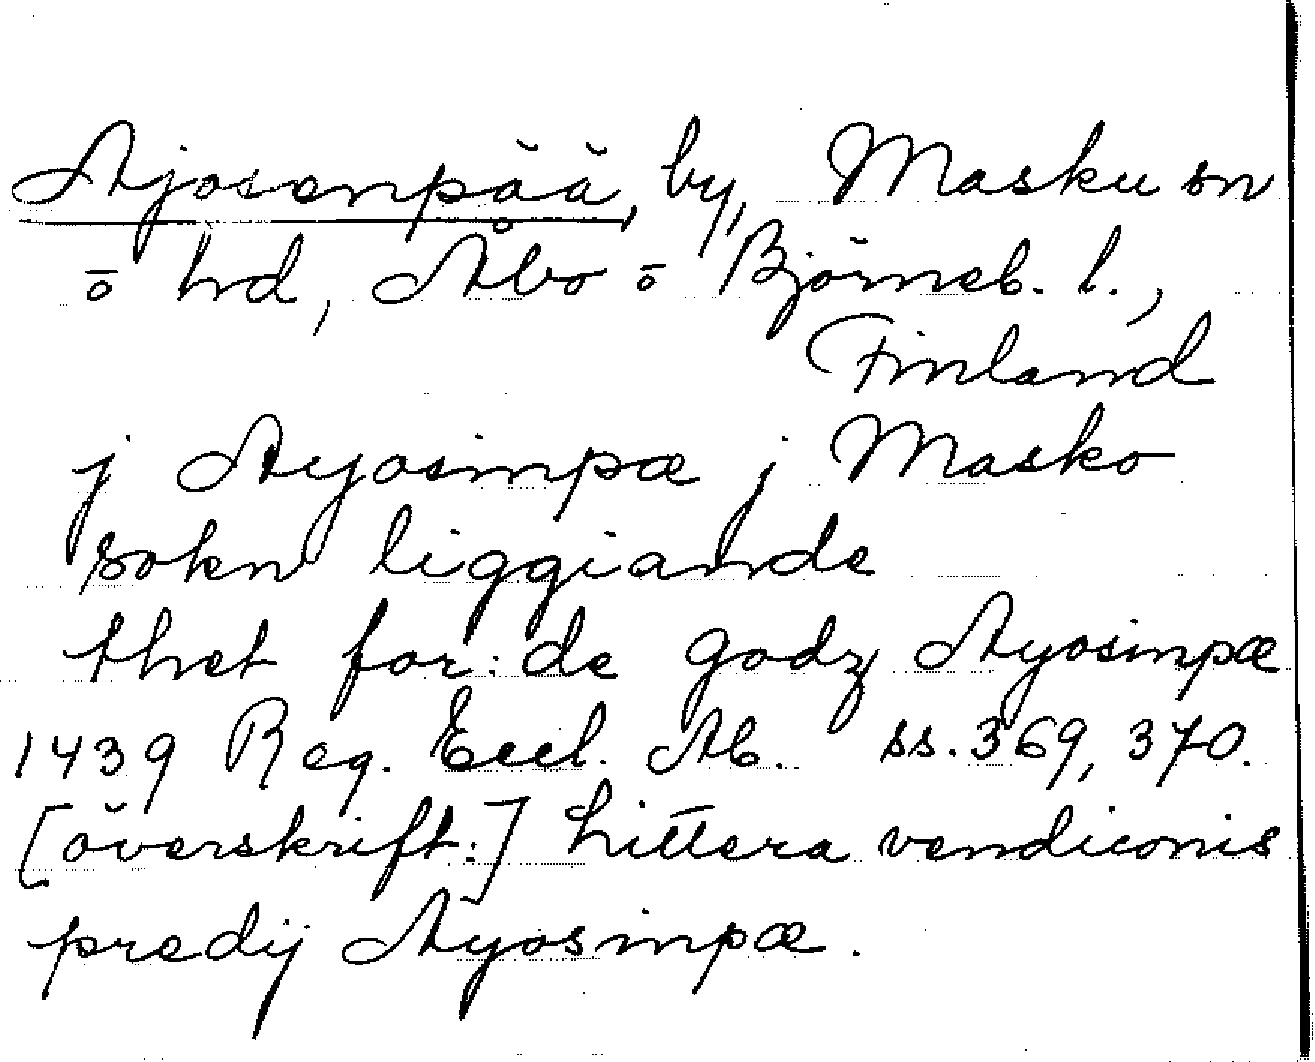 Ajosenpää, by, Masku sn
o hd, Åbo o Björneb. l.,
Finland
j Ayosinpæ j Masko
sokn liggiande
thet for:de godz Ayosinpæ
1439 Reg. Eccl. Ab. ss. 369, 370.
[överskrift:] Littera vendiconis
predij Ayosinpæ.